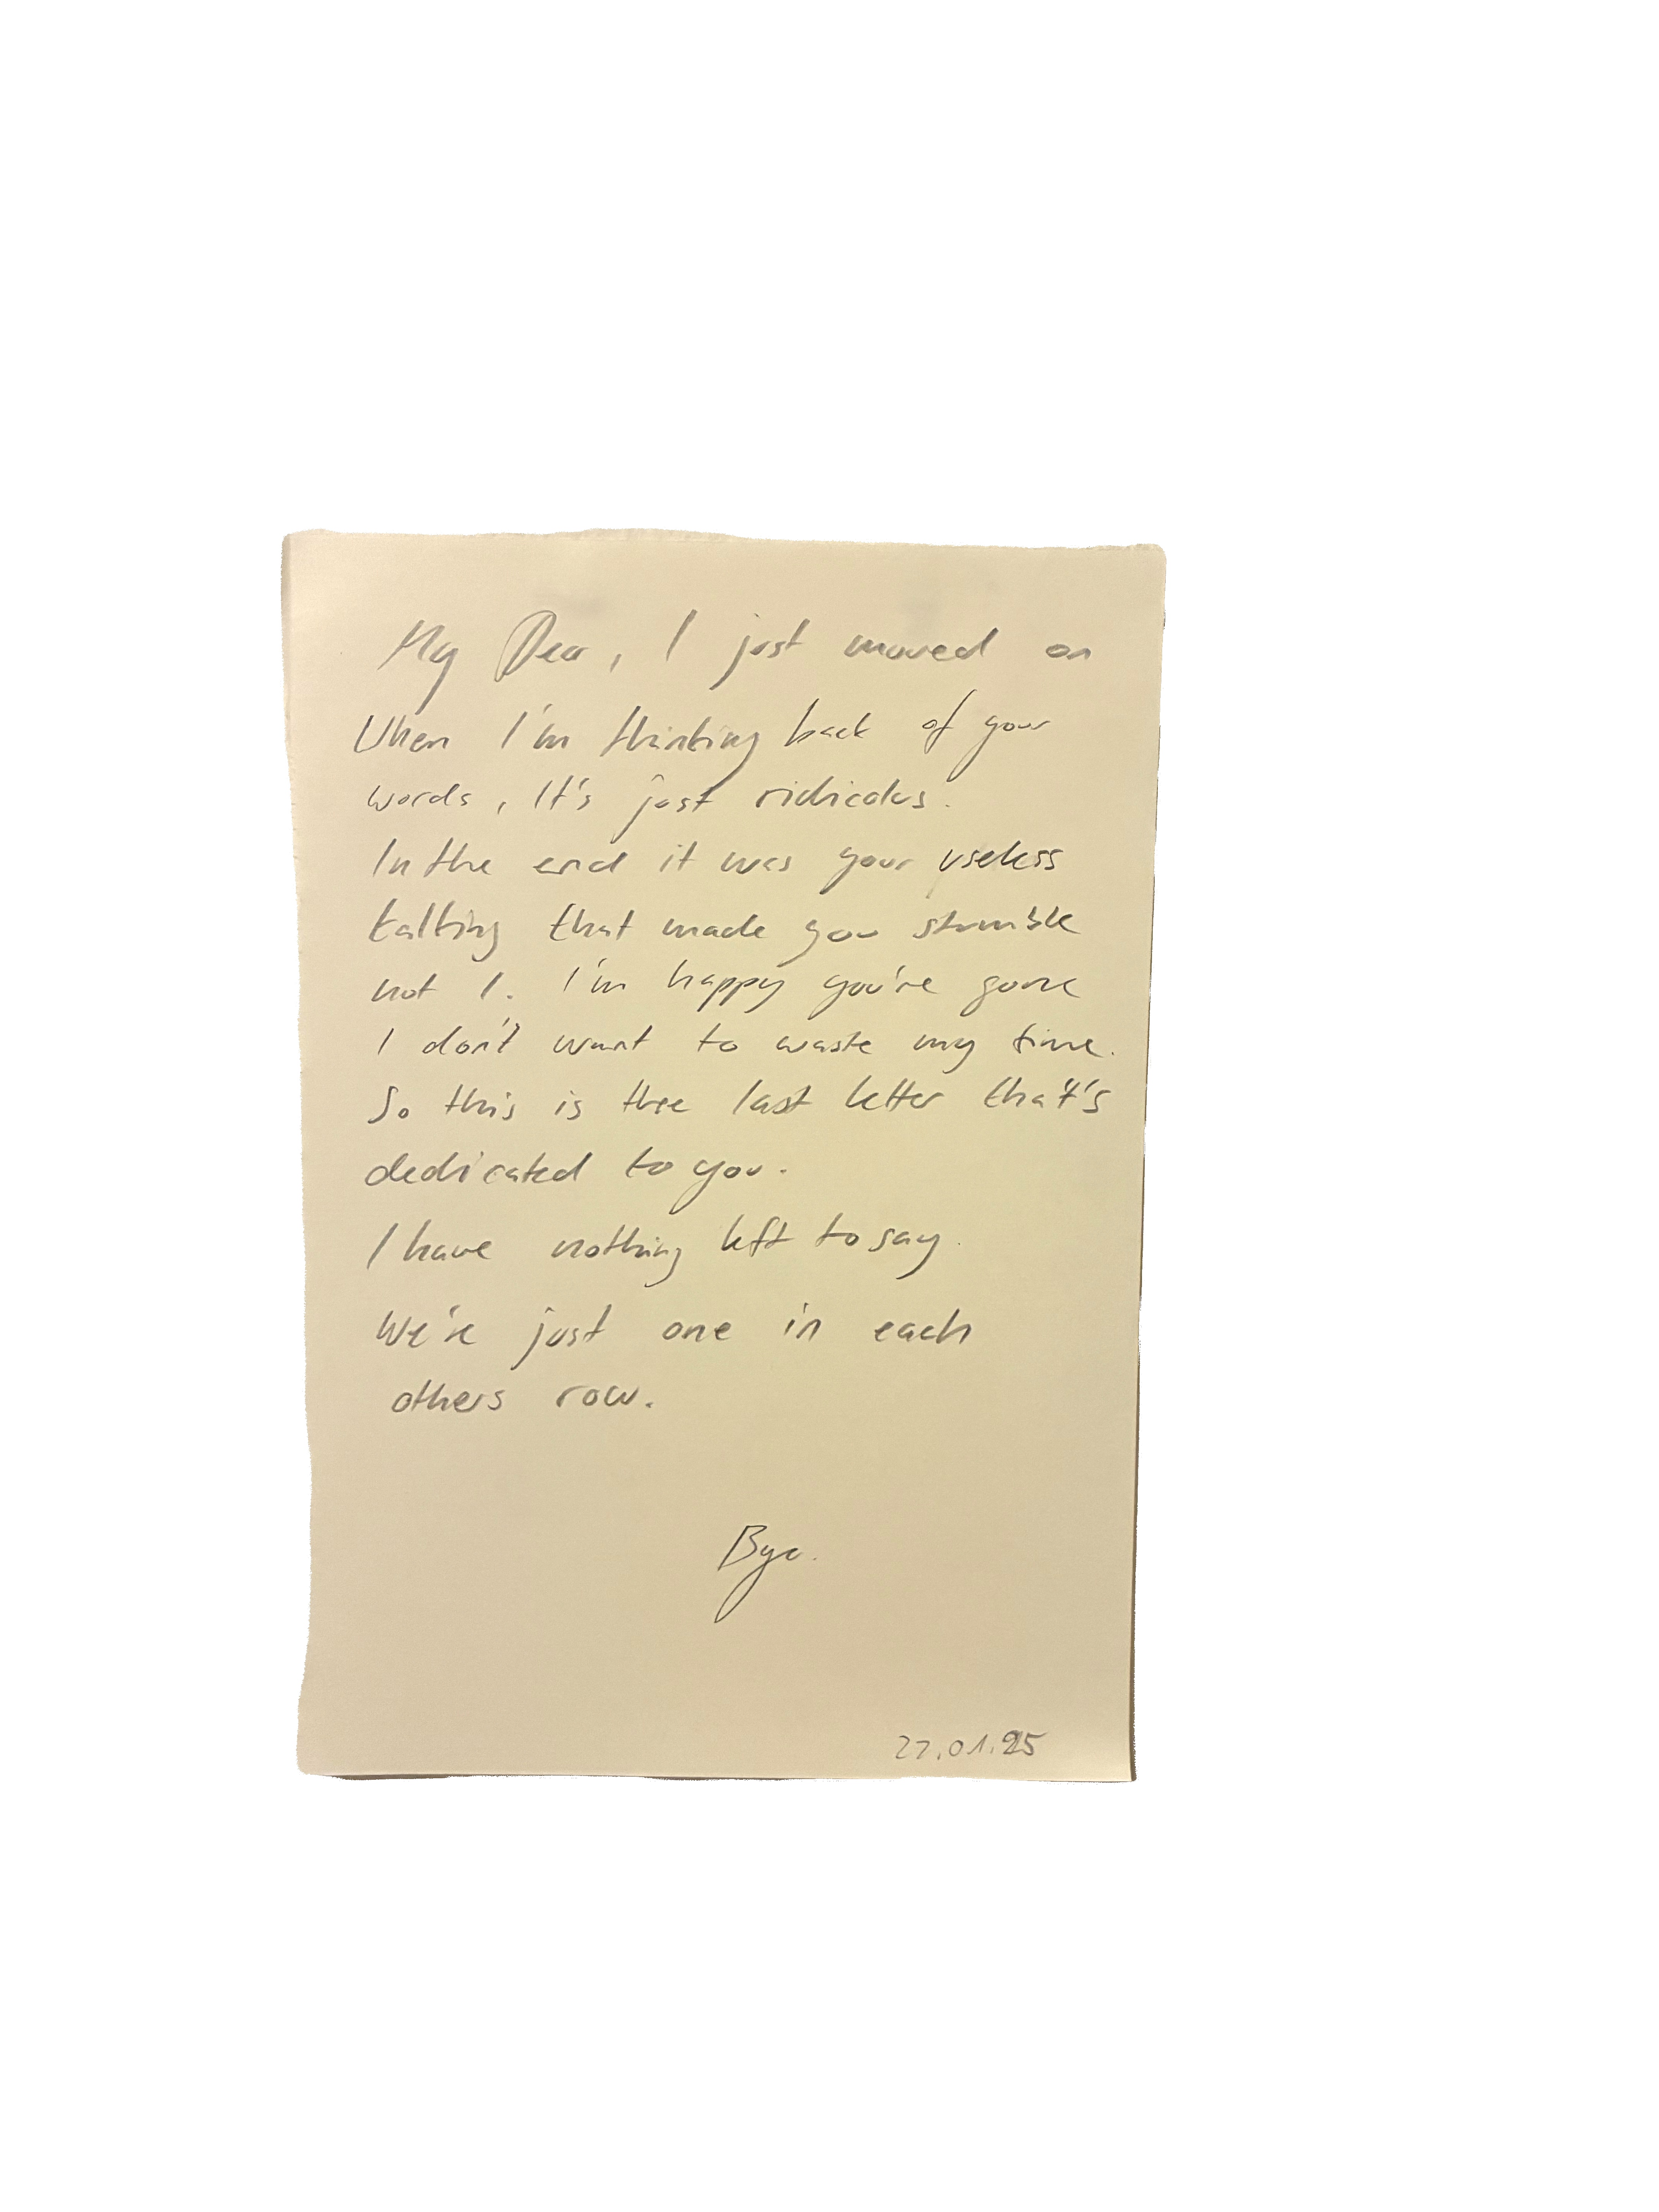 My Dear, I just moved on
When I'm thinking back of your
words, It's just ridicolus.
In the end it was your useless
talking that made you stumble
not I. I'm happy you're gone
I don't want to waste my time.
So this is the last letter that's
dedicated to you.
I have nothing left to say.
We're just one in each
others row.
Bye.
27.01.25